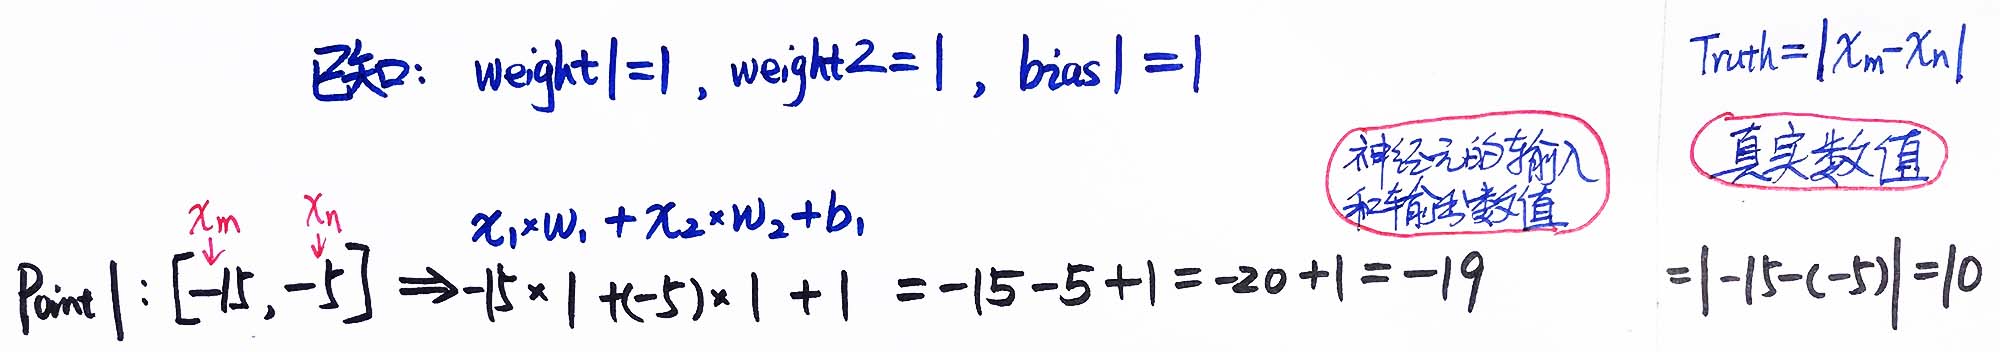 已知: weight1=1, weight2=1, bias1=1
Truth=|xm-xn|
神经元的输入
和输出数值
真实数值
xm xn
x1×w1+x2×w2+b1
Point1: [-15, -5] ⇒ -15×1+(-5)×1+1 =-15-5+1=-20+1=-19
=|-15-(-5)|=10